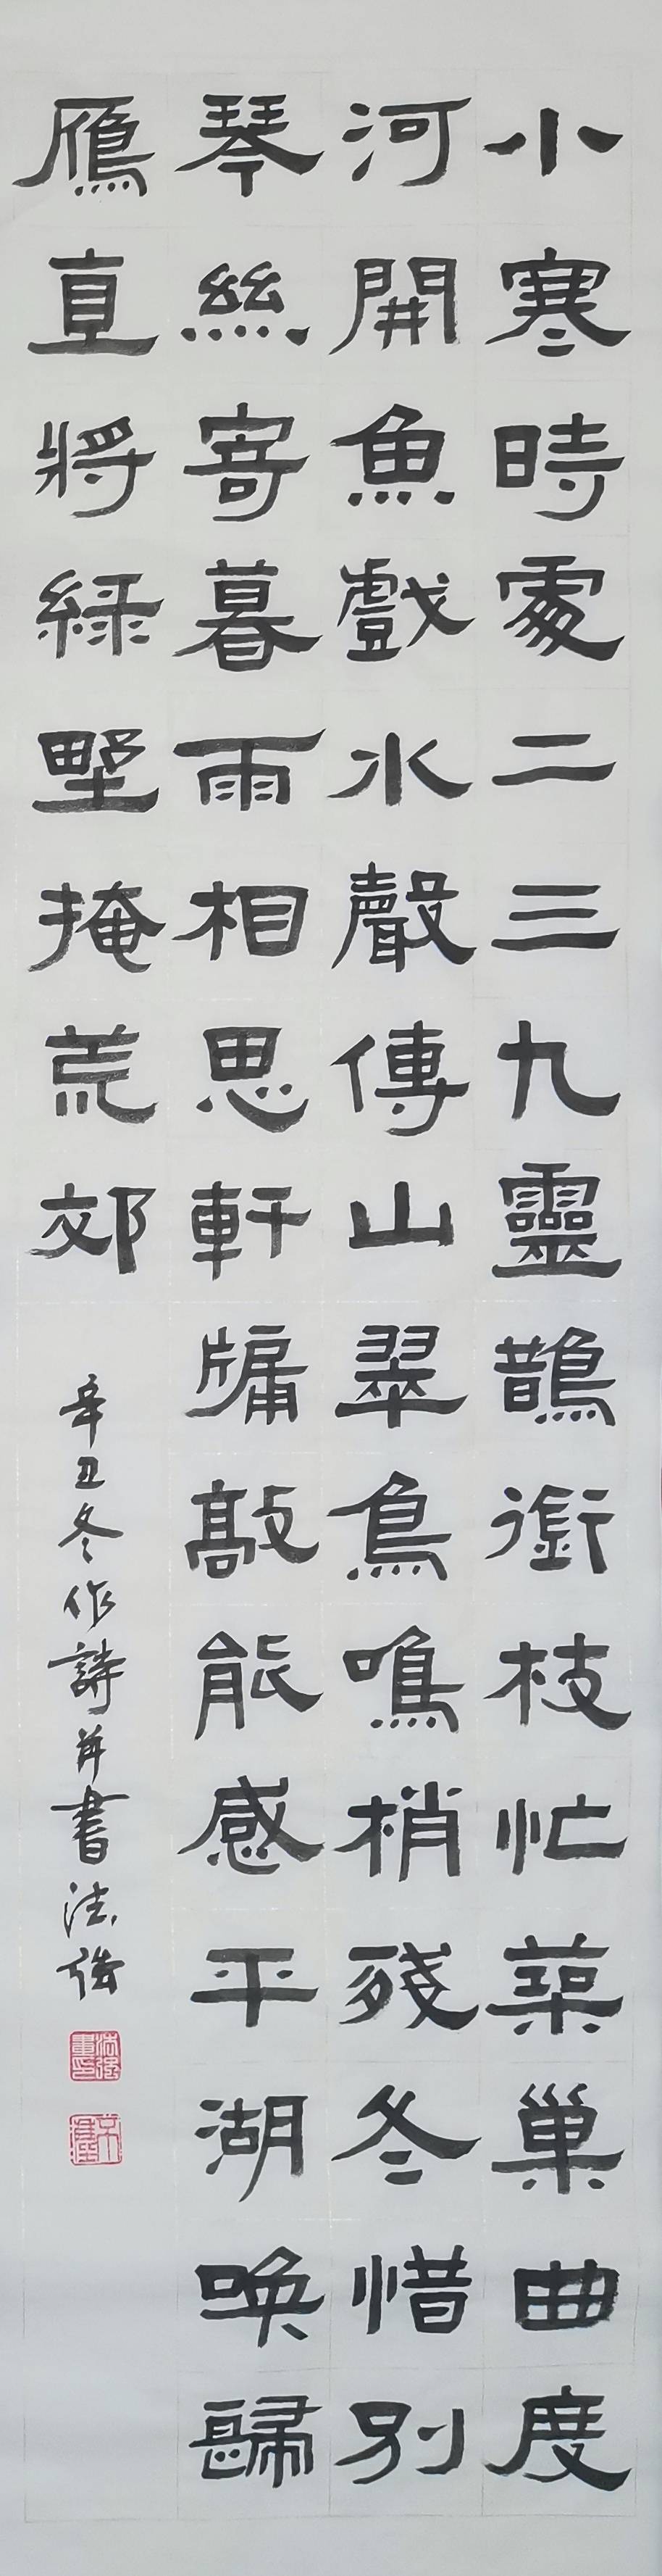 小寒時處二三九靈鵲銜枝忙築巢曲度
河開魚戲水聲傳山翠鳥鳴梢殘冬惜別
琴絲寄暮雨相思軒牖敲能感平湖喚歸
鴈直將綠野掩荒郊
辛丑冬作詩并書法強